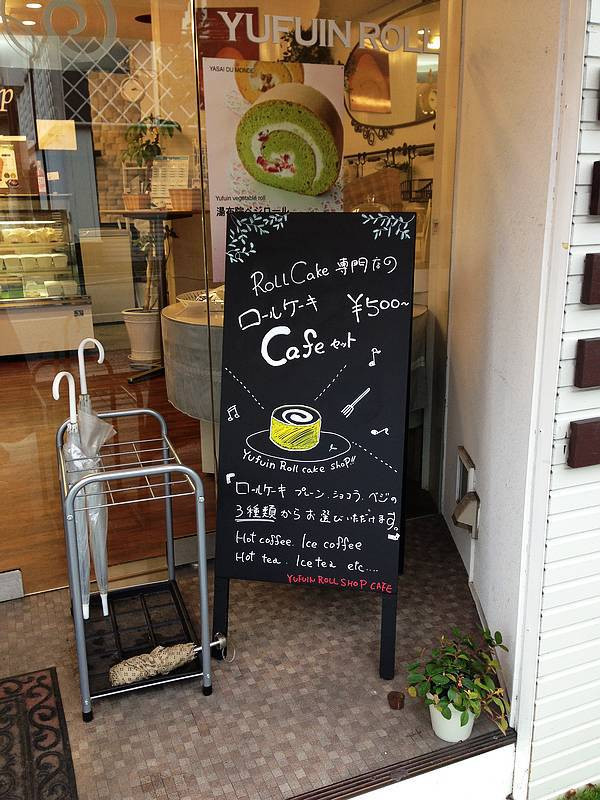 YUFUIN ROLL
YASAI DU MONDE
Yufuin vegetable roll
湯布院ベジロール
RollCake 専門店の
ロールケーキ ¥500~
Cafe セット
Yufuin Roll cake shop!!
『ロールケーキ プレーン、ショコラ、ベジの
3種類からお選びいただけます。』
Hot coffee. Ice coffee
Hot tea. Ice tea etc....
YUFUIN ROLL SHOP CAFE